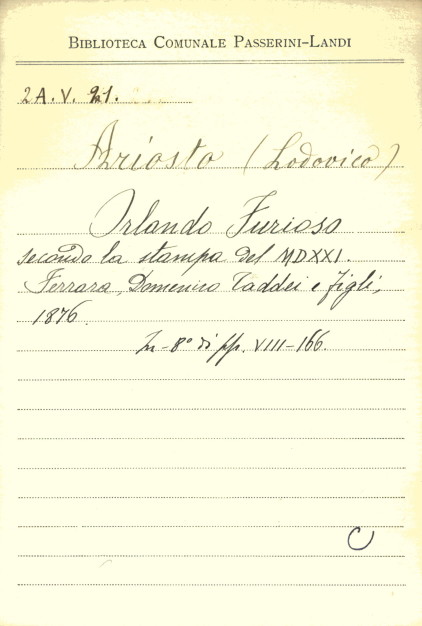 BIBLIOTECA COMUNALE PASSERINI-LANDI
2A.V. 21.
Ariosto (Lodovico)
Orlando Furioso
secondo la stampa del MDXXI.
Ferrara, Domenico Taddei e figli,
1876.
In-8° di pp. VIII-166.
C